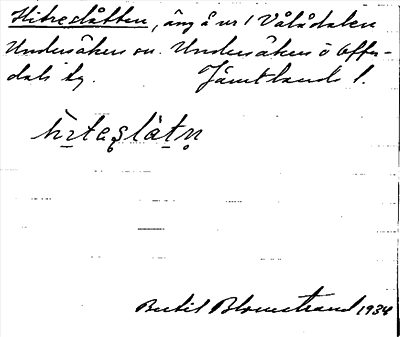 Hitreslåtten, äng å nr 1 Vålådalen
Undersåkers sn. Undersåkers o Offer-
dals tg. Jämtlands l.
Bertil Blomstrand 1934